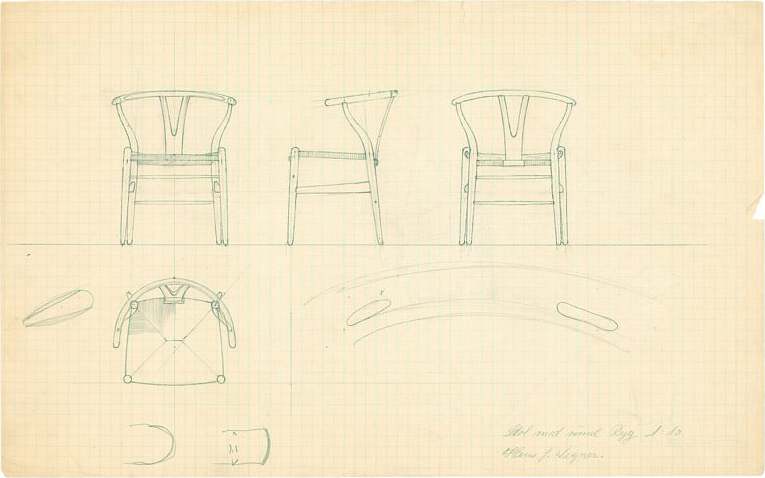 Stol med rund Ryg 1:10.
Hans J. Wegner.